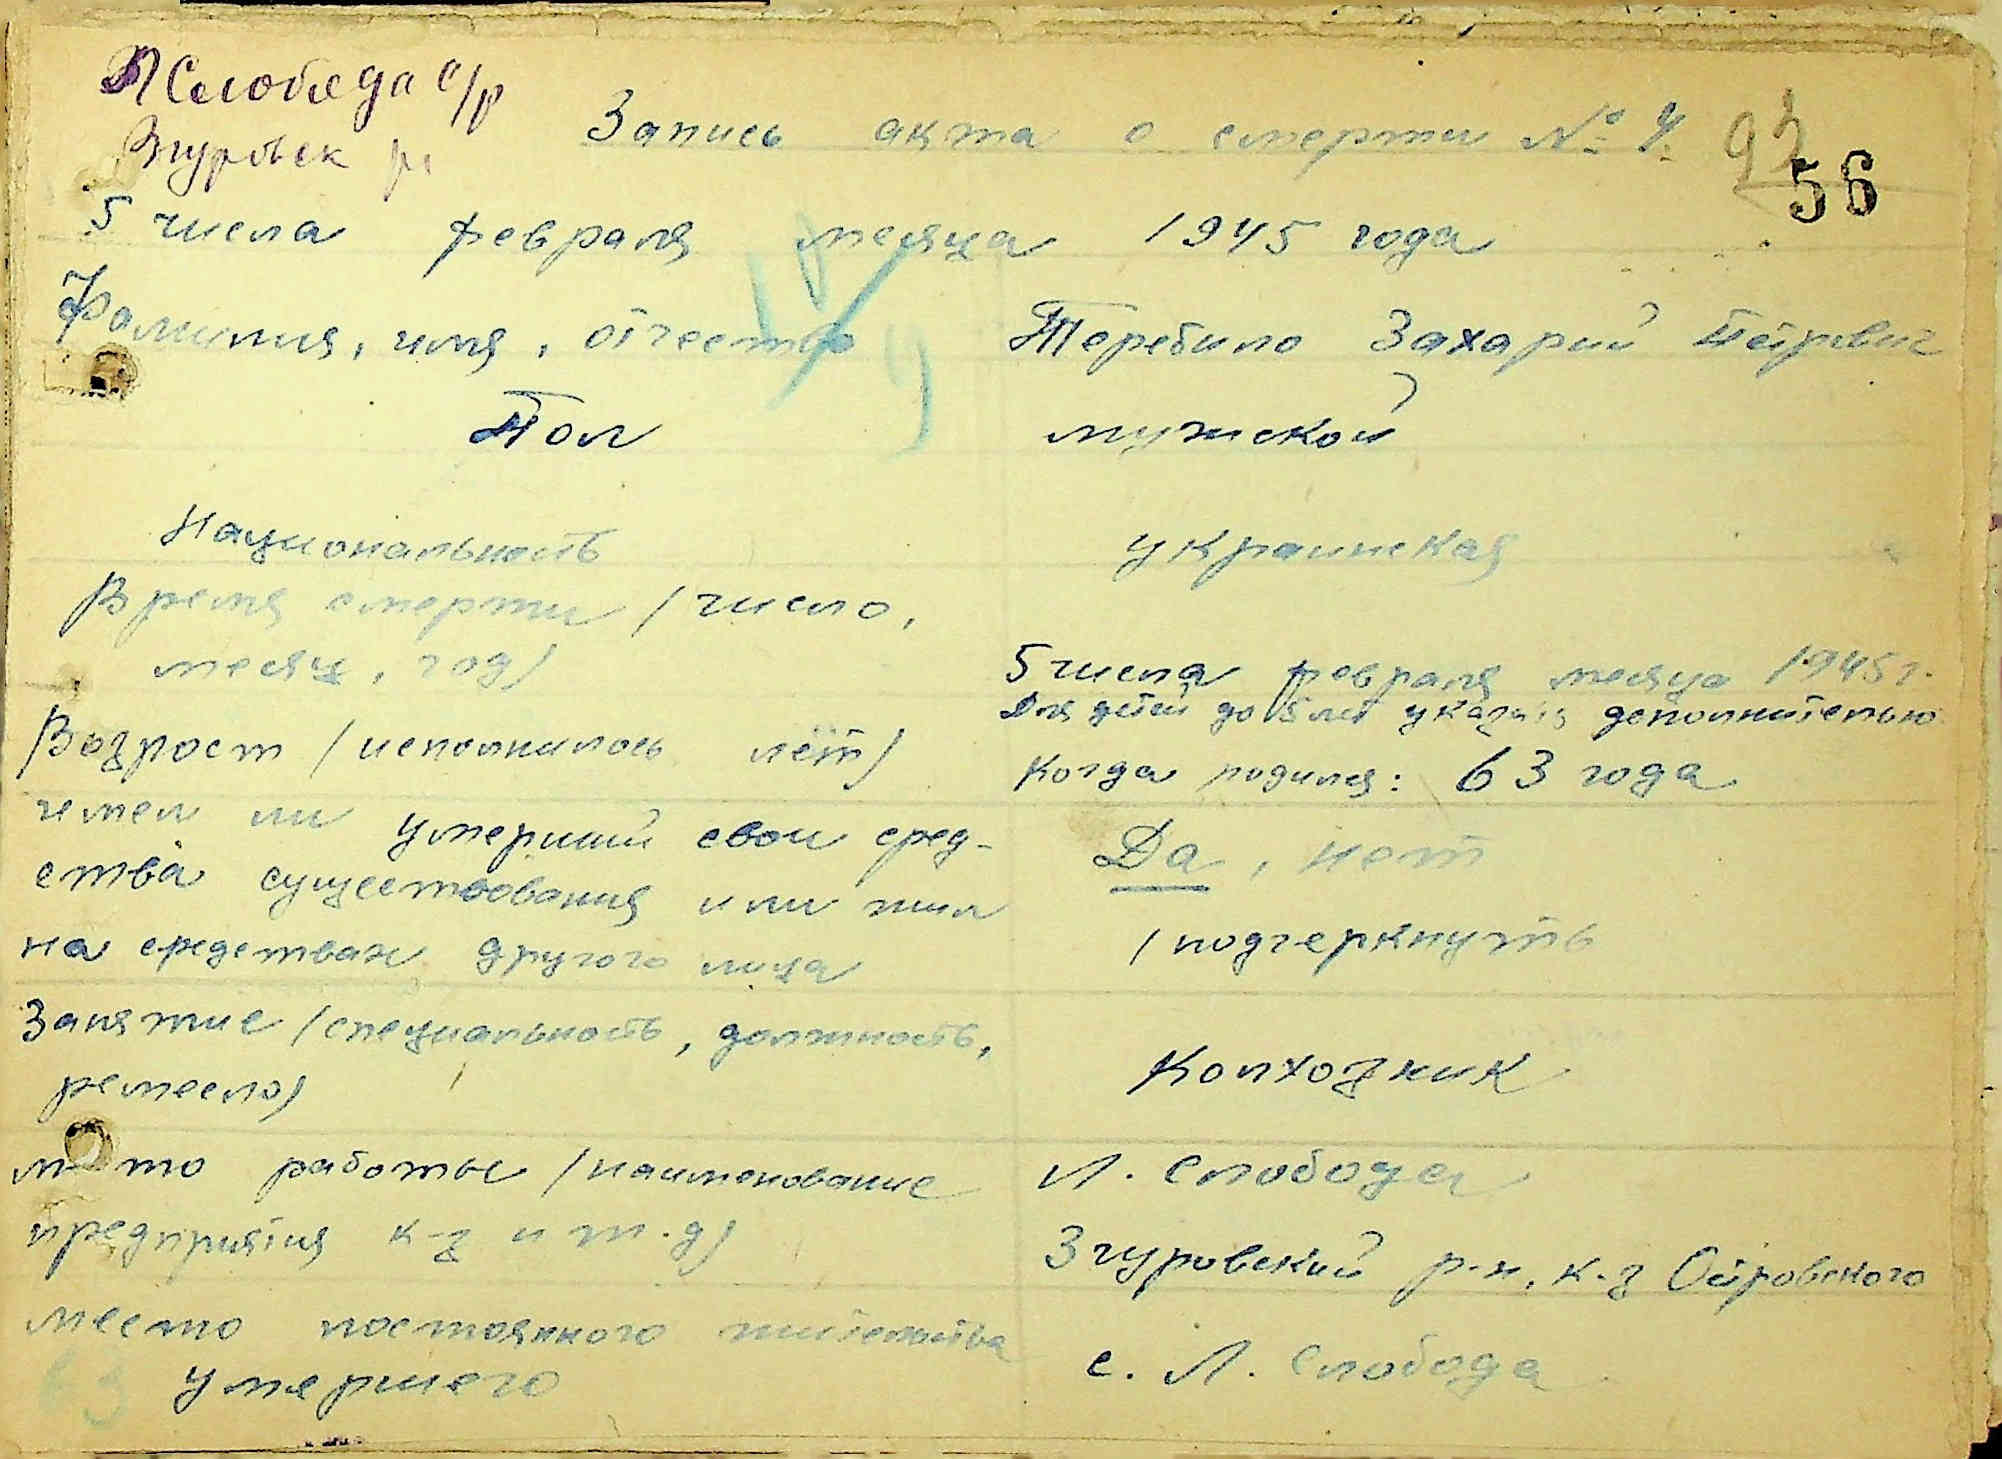 Л Слобода с/р
Згуровск р
Запись акта о смерти № 4.
92
56
5 числа февраля месяца 1945 года
Фамилия, имя, отчество Теребило Захарий Петрович
Пол мужской
Национальность украинская
Время смерти / число,
месяц, год) 5 числа февраля месяца 1945 г.
Для детей до 5 лет указать дополнительно
Возрост / исполнилось лет) когда родился: 63 года
имел ли умерший свои сред-
ства существования или жил Да, нет
на средствах другого лица / подчеркнуть
Занятие / специальность, должность,
ремесло) Колхозник
место работы / наименование Л. Слобода
предприятия к-з и т.д) Згуровский р-н, к-з Островского
место постоянного жительства
умершего с. Л. Слобода